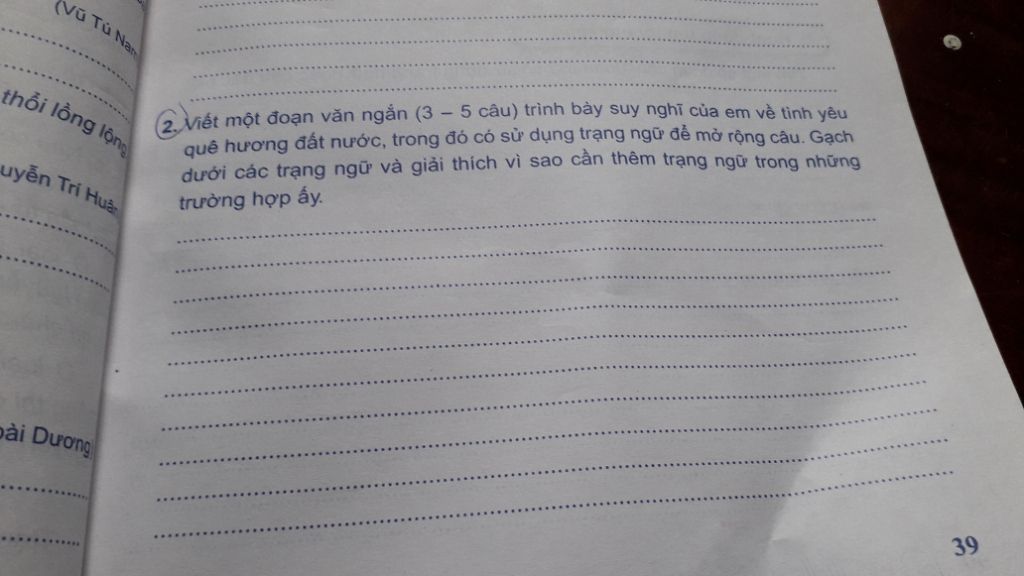 (Vũ Tú Nam
thổi lồng lộng
uyễn Trí Huân
oài Dương)
2. Viết một đoạn văn ngắn (3 – 5 câu) trình bày suy nghĩ của em về tình yêu
quê hương đất nước, trong đó có sử dụng trạng ngữ để mở rộng câu. Gạch
dưới các trạng ngữ và giải thích vì sao cần thêm trạng ngữ trong những
trường hợp ấy.
39